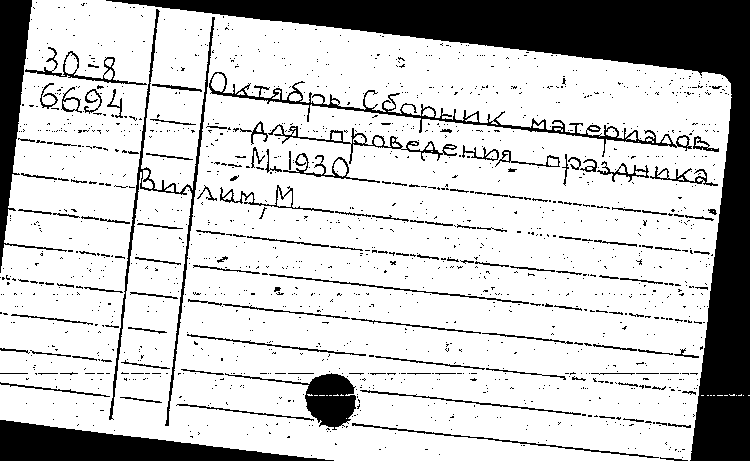 30-8
6694
Октябрь. Сборник материалов
для проведения праздника
М. 1930
Виллим, М